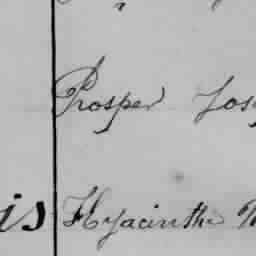 Prosper Jos
is Hyacinthe